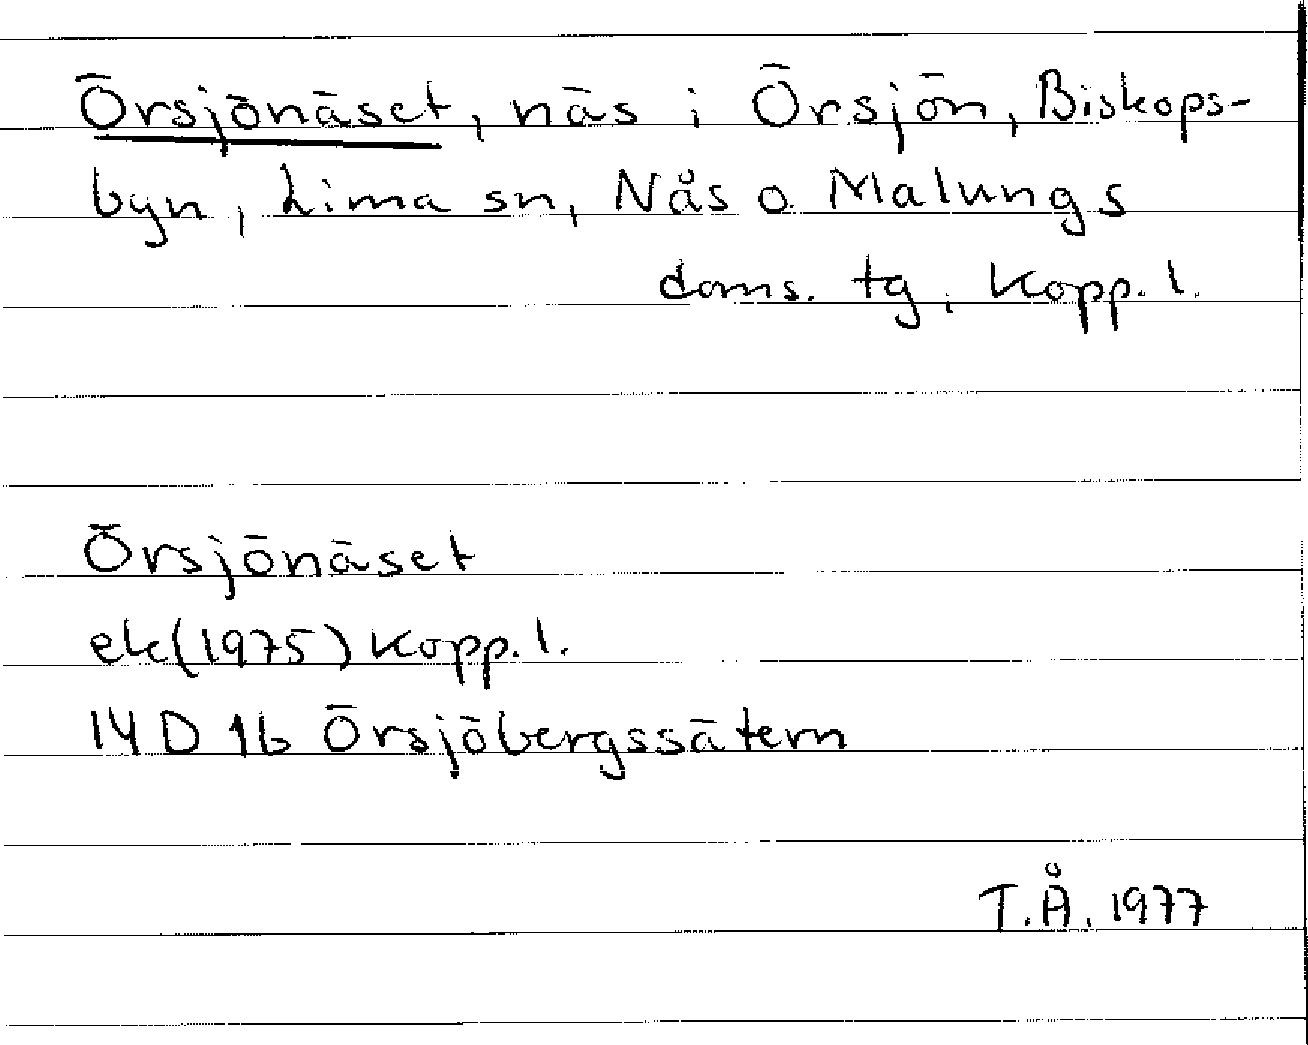 Örsjönäset, näs i Örsjön, Biskops-
byn, Lima sn, Nås o. Malungs
doms. tg, Kopp. l.
Örsjönäset
ek(1975) Kopp. l.
14 D 1b Örsjöbergssätern
T.Å. 1977